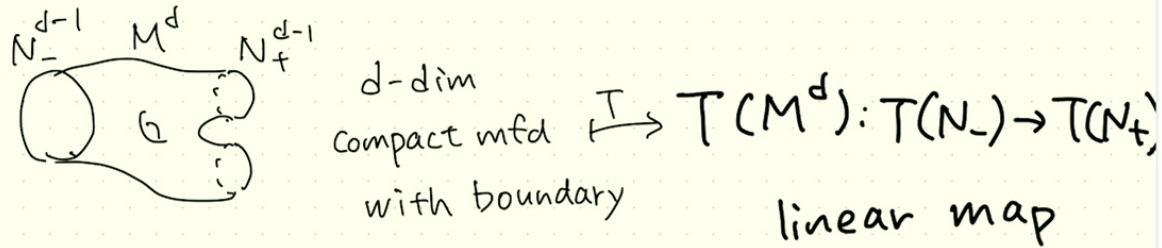 N_-^{d-1} M^d N_+^{d-1}
d-dim
compact mfd
with boundary
T
↦ T(M^d): T(N_-) → T(N_+)
linear map